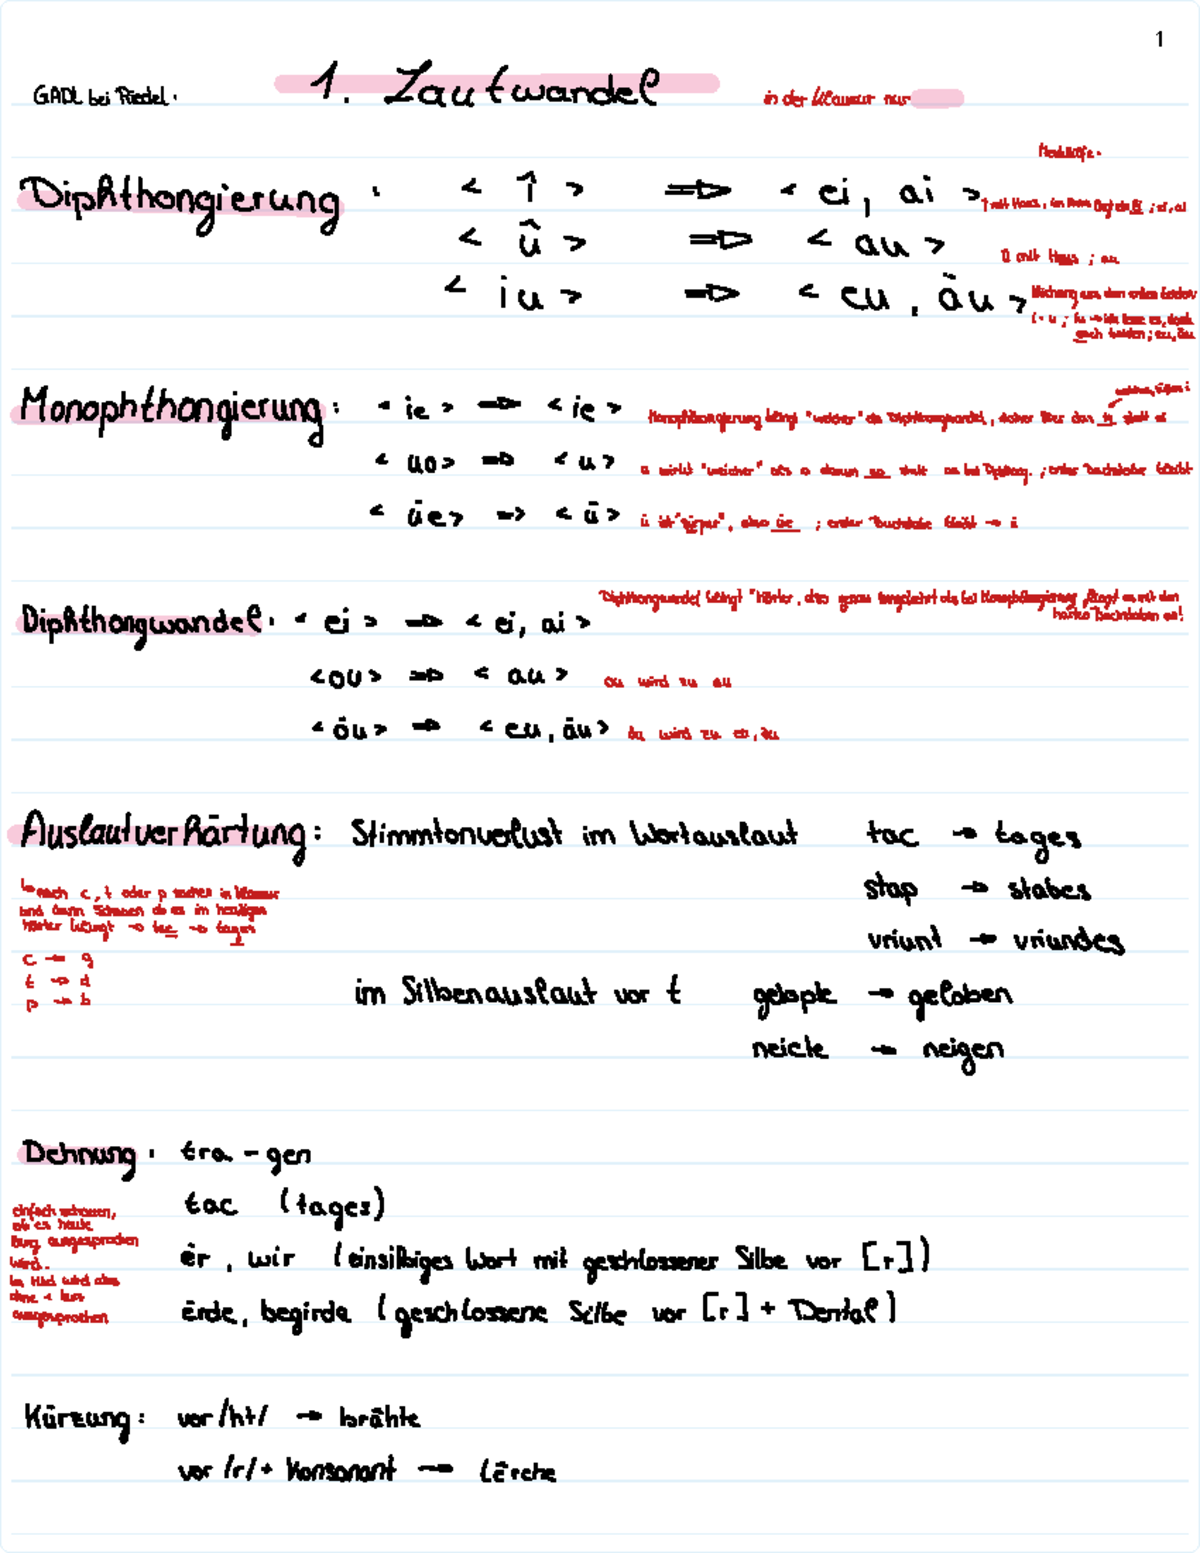 1
GADL bei Riedel.
1. Lautwandel
in der Klausur nur
Merkhilfe.
Diphthongierung : < î > => < ei, ai >
î mit Haus, im Haus ; ei, ai
< û > => < au >
û mit Haus ; au
< iu > => < eu, äu >
Mischung aus den ersten beiden
i + u ; iu
nach beiden ; eu, äu
Monophthongierung : < ie > => < ie >
Monophthongierung klingt "weicher" als Diphthongwandel, daher hier das ie statt ei
< uo > => < u >
u wirkt "weicher" als o darum uo statt ou bei Diphthong. ; erster Buchstabe bleibt
< üe > => < ü >
ü ist , also üe ; erster Buchstabe bleibt → ü
Diphthongwandel : < ei > => < ei, ai >
Diphthongwandel klingt "härter, also genau umgekehrt als bei Monophthongierung, fängt es mit den
harten Buchstaben an!
<ou> => < au >
ou wird zu au
< öu > => < eu, äu >
öu wird zu eu, äu
Auslautverhärtung : Stimmtonverlust im Wortauslaut tac → tages
stap → stabes
vriunt → vriundes
↳ nach c, t oder p suchen in Klausur
und dann schauen ob es im heutigen
härter klingt → tac → tages
c → g
t → d
p → b
im Silbenauslaut vor t gelopte → geloben
neicte → neigen
Dehnung : tra - gen
tac (tages)
einfach schauen,
ob es heute
lang ausgesprochen
wird.
Im Mhd wird alles
ohne ^ kurz
ausgesprochen
ër, wir (einsilbiges Wort mit geschlossener Silbe vor [r])
ërde, begirde (geschlossene Silbe vor [r] + Dental)
Kürzung : vor /ht/ → brâhte
vor /r/ + Konsonant → Lêrche